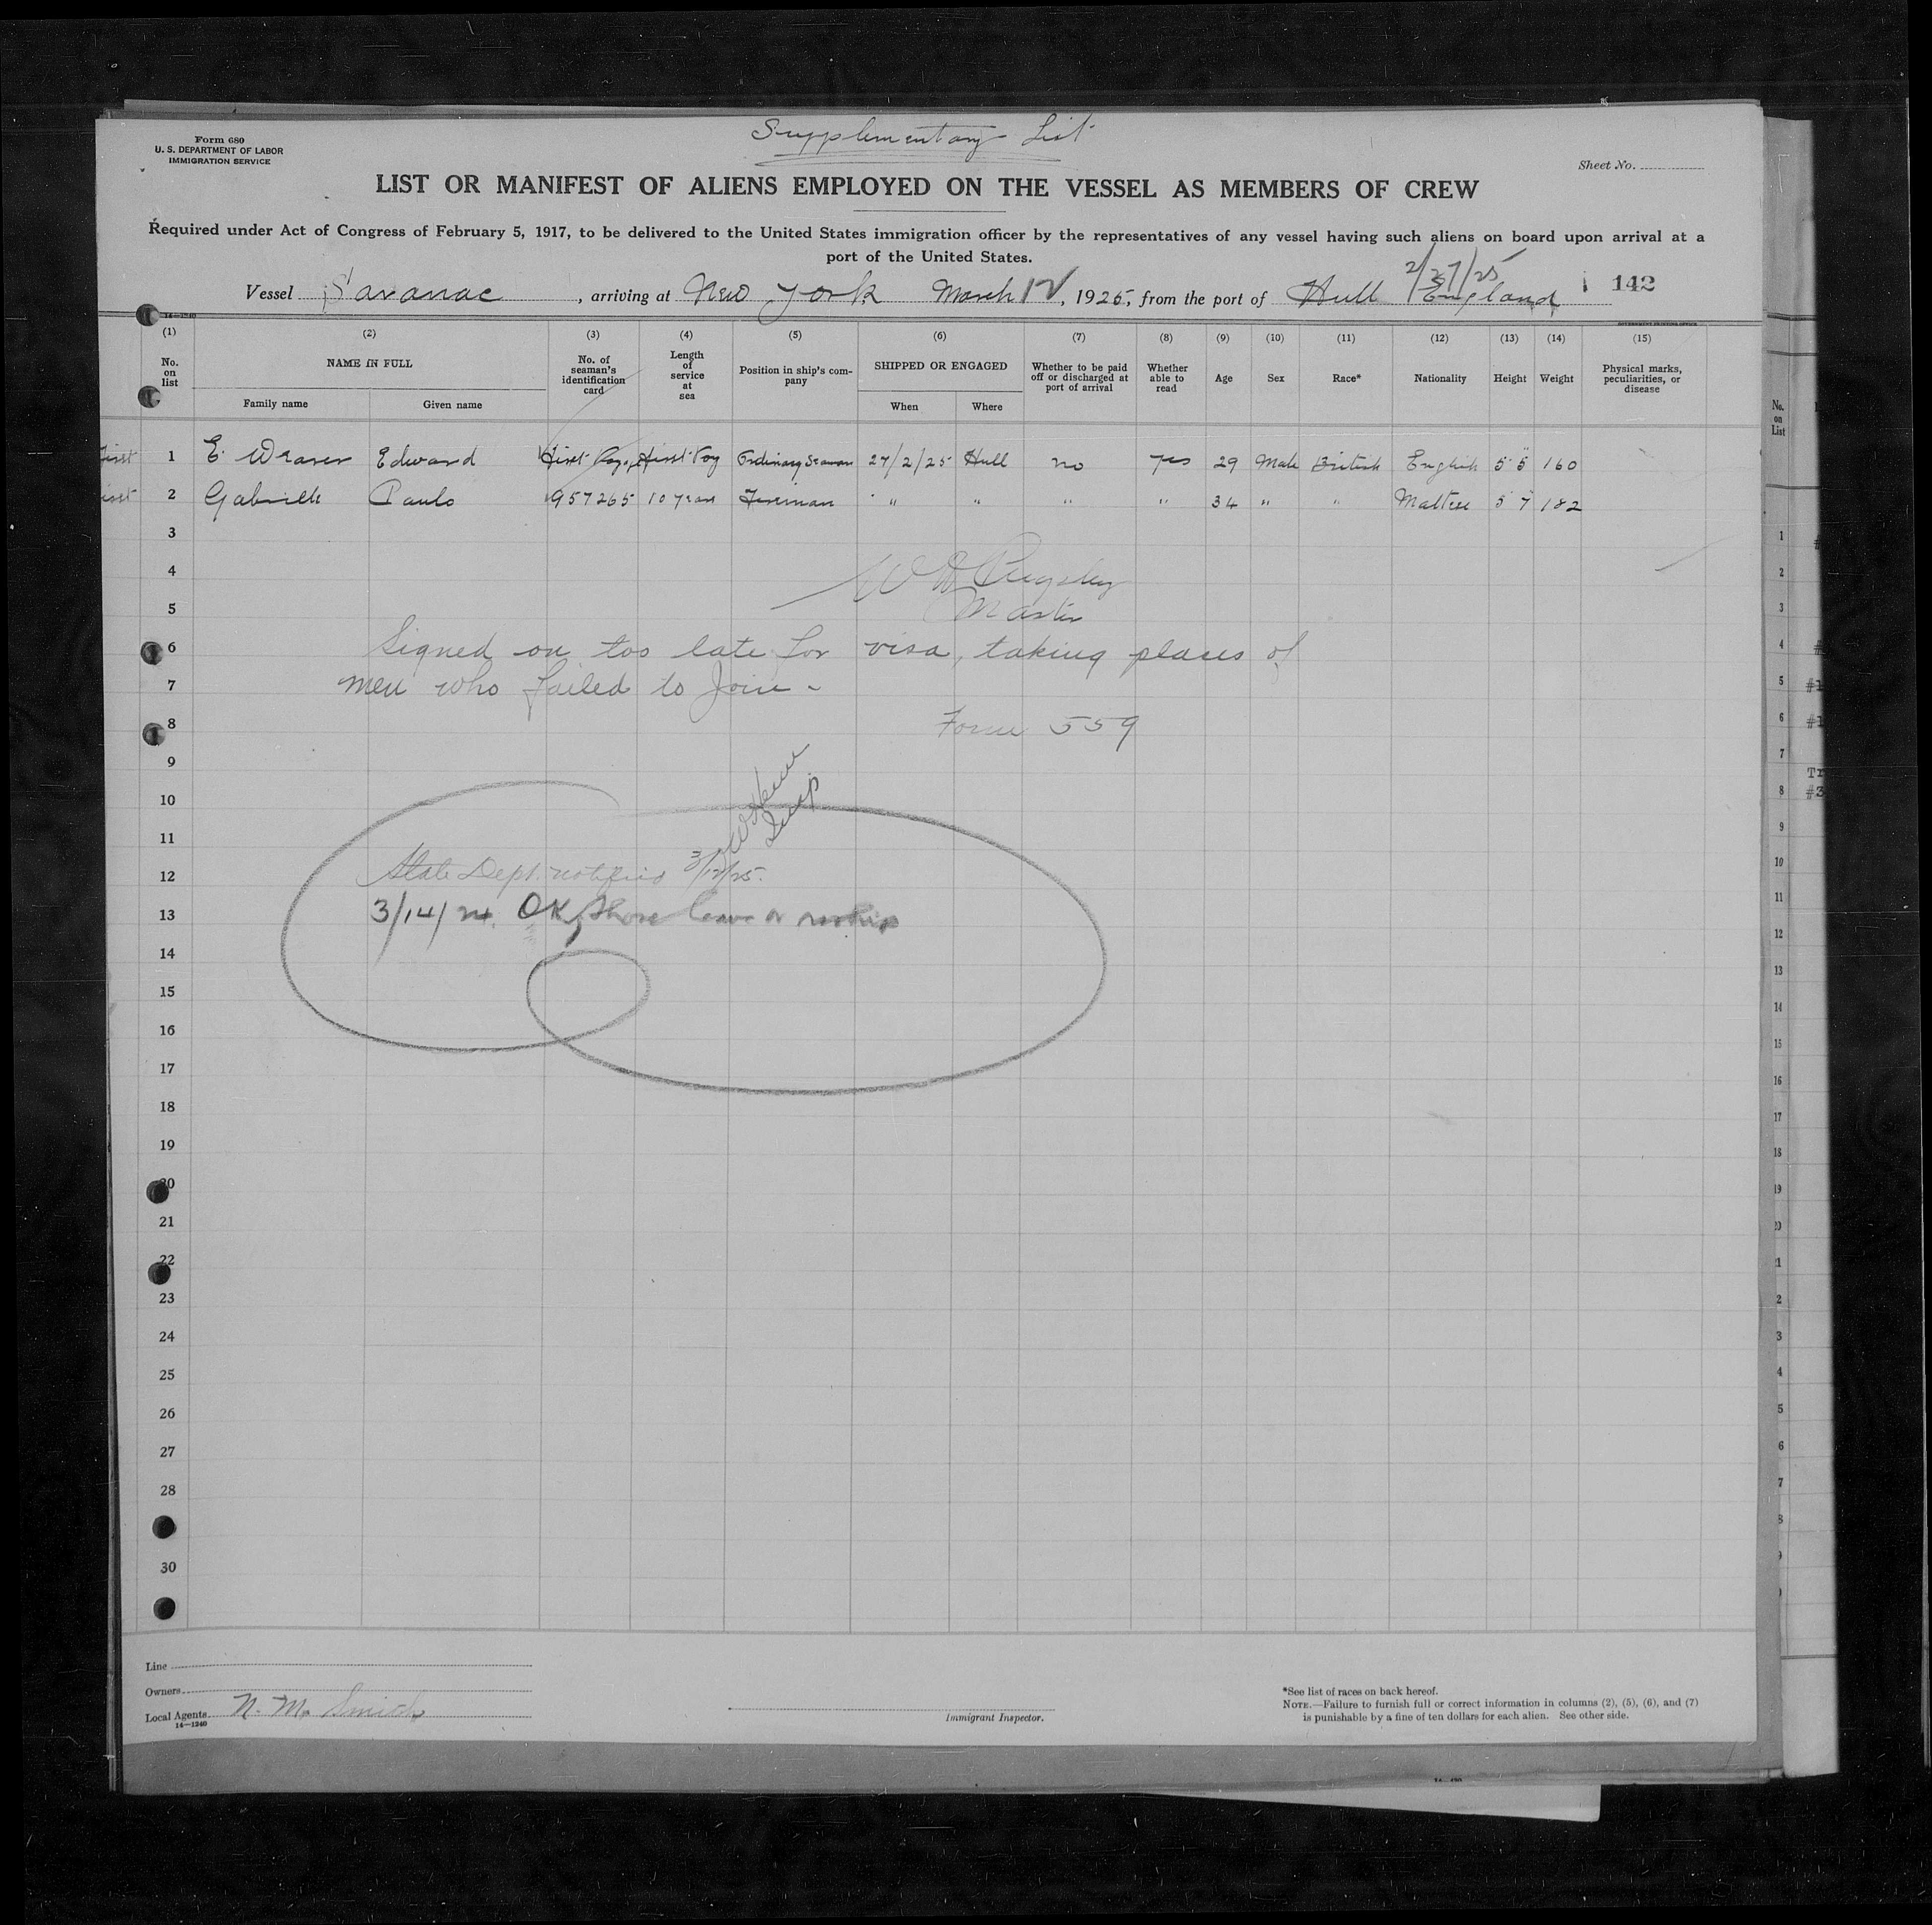 Form 680
U. S. DEPARTMENT OF LABOR
IMMIGRATION SERVICE
Supplementary List
Sheet No.
LIST OR MANIFEST OF ALIENS EMPLOYED ON THE VESSEL AS MEMBERS OF CREW
Required under Act of Congress of February 5, 1917, to be delivered to the United States immigration officer by the representatives of any vessel having such aliens on board upon arrival at a
port of the United States.
2/27/25
Vessel Saranac, arriving at New York March 12, 1925, from the port of Hull England 142
14-1240
GOVERNMENT PRINTING OFFICE
(1) (2) (3) (4) (5) (6) (7) (8) (9) (10) (11) (12) (13) (14) (15)
No. on list NAME IN FULL No. of seaman's identification card Length of service at sea Position in ship's company SHIPPED OR ENGAGED Whether to be paid off or discharged at port of arrival Whether able to read Age Sex Race* Nationality Height Weight Physical marks, peculiarities, or disease
Family name Given name When Where
First 1 E. Weaver Edward First Voy. First Voy Ordinary Seaman 27/2/25 Hull no yes 29 Male British English 5' 5" 160
2 Gabriele Paulo 957265 10 years Fireman " " " " 34 " " Maltese 5' 7" 182
3
4 W D Pugsley
5 Master
6 Signed on too late for visa, taking places of
7 men who failed to join -
8 Form 559
9
10
11 Insp
12 State Dept. notified 3/12/25.
13 3/14/24. OK, Shore leave or reship
14
15
16
17
18
19
20
21
22
23
24
25
26
27
28
30
Line
Owners
Local Agents N. M. Smith
14-1240
Immigrant Inspector.
*See list of races on back hereof.
NOTE.—Failure to furnish full or correct information in columns (2), (5), (6), and (7)
is punishable by a fine of ten dollars for each alien. See other side.
No. on List
1
2
3
4
5
6
7
8
9
10
11
12
13
14
15
16
17
18
19